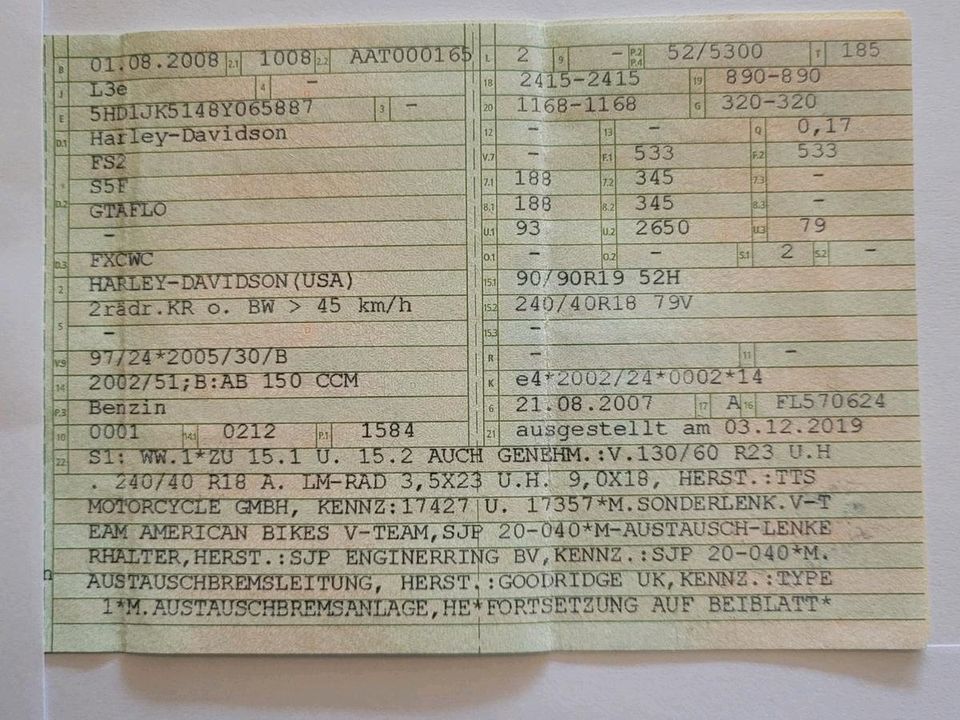 B 01.08.2008 2.1 1008 2.2 AAT000165
J L3e 4 -
E 5HD1JK5148Y065887 3 -
D.1 Harley-Davidson
FS2
D.2 S5F
GTAFLO
-
D.3 FXCWC
2 HARLEY-DAVIDSON(USA)
2rädr.KR o. BW > 45 km/h
5 -
V.9 97/24*2005/30/B
14 2002/51;B:AB 150 CCM
P.3 Benzin
10 0001 14.1 0212 P.1 1584
L 2 9 - P.2 P.4 52/5300 T 185
18 2415-2415 19 890-890
20 1168-1168 G 320-320
12 - 13 - Q 0,17
V.7 - F.1 533 F.2 533
7.1 188 7.2 345 7.3 -
8.1 188 8.2 345 8.3 -
U.1 93 U.2 2650 U.3 79
O.1 - O.2 - S.1 2 S.2 -
15.1 90/90R19 52H
15.2 240/40R18 79V
15.3 -
R - 11 -
K e4*2002/24*0002*14
6 21.08.2007 17 A 16 FL570624
21 ausgestellt am 03.12.2019
22 S1: WW.1*ZU 15.1 U. 15.2 AUCH GENEHM.:V.130/60 R23 U.H
. 240/40 R18 A. LM-RAD 3,5X23 U.H. 9,0X18, HERST.:TTS
MOTORCYCLE GMBH, KENNZ:17427 U. 17357*M.SONDERLENK.V-T
EAM AMERICAN BIKES V-TEAM,SJP 20-040*M-AUSTAUSCH-LENKE
RHALTER,HERST.:SJP ENGINERRING BV,KENNZ.:SJP 20-040*M.
AUSTAUSCHBREMSLEITUNG, HERST.:GOODRIDGE UK,KENNZ.:TYPE
1*M.AUSTAUSCHBREMSANLAGE,HE*FORTSETZUNG AUF BEIBLATT*